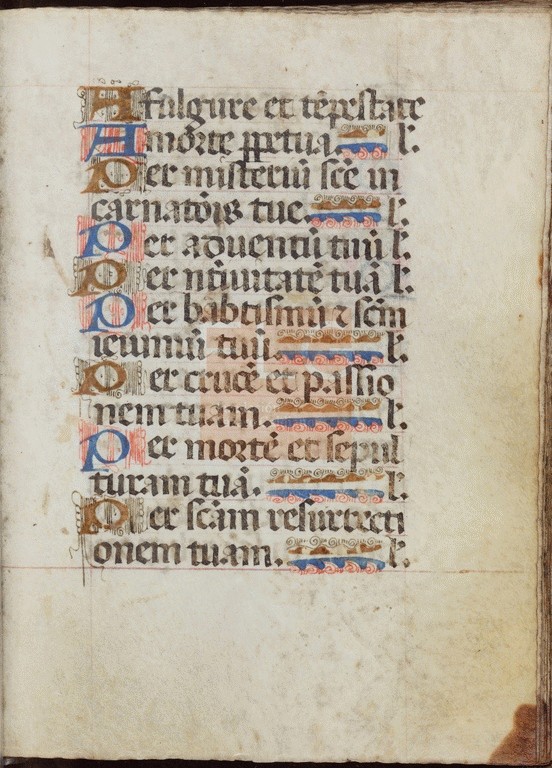 A fulgure et tēpestate
A morte ꝑpetua. l'.
Per misteriū scē in
carnatōis tue. l'.
Per aduentū tuū l'.
Per natiuitatē tuā l'.
Per babtismū ⁊ scm̄
ieiuniū tuū. l'.
Per crucē et passio
nem tuam. l'.
Per mortē et sepul
turam tuā. l'.
Per scām resurrecti
onem tuam. l'.